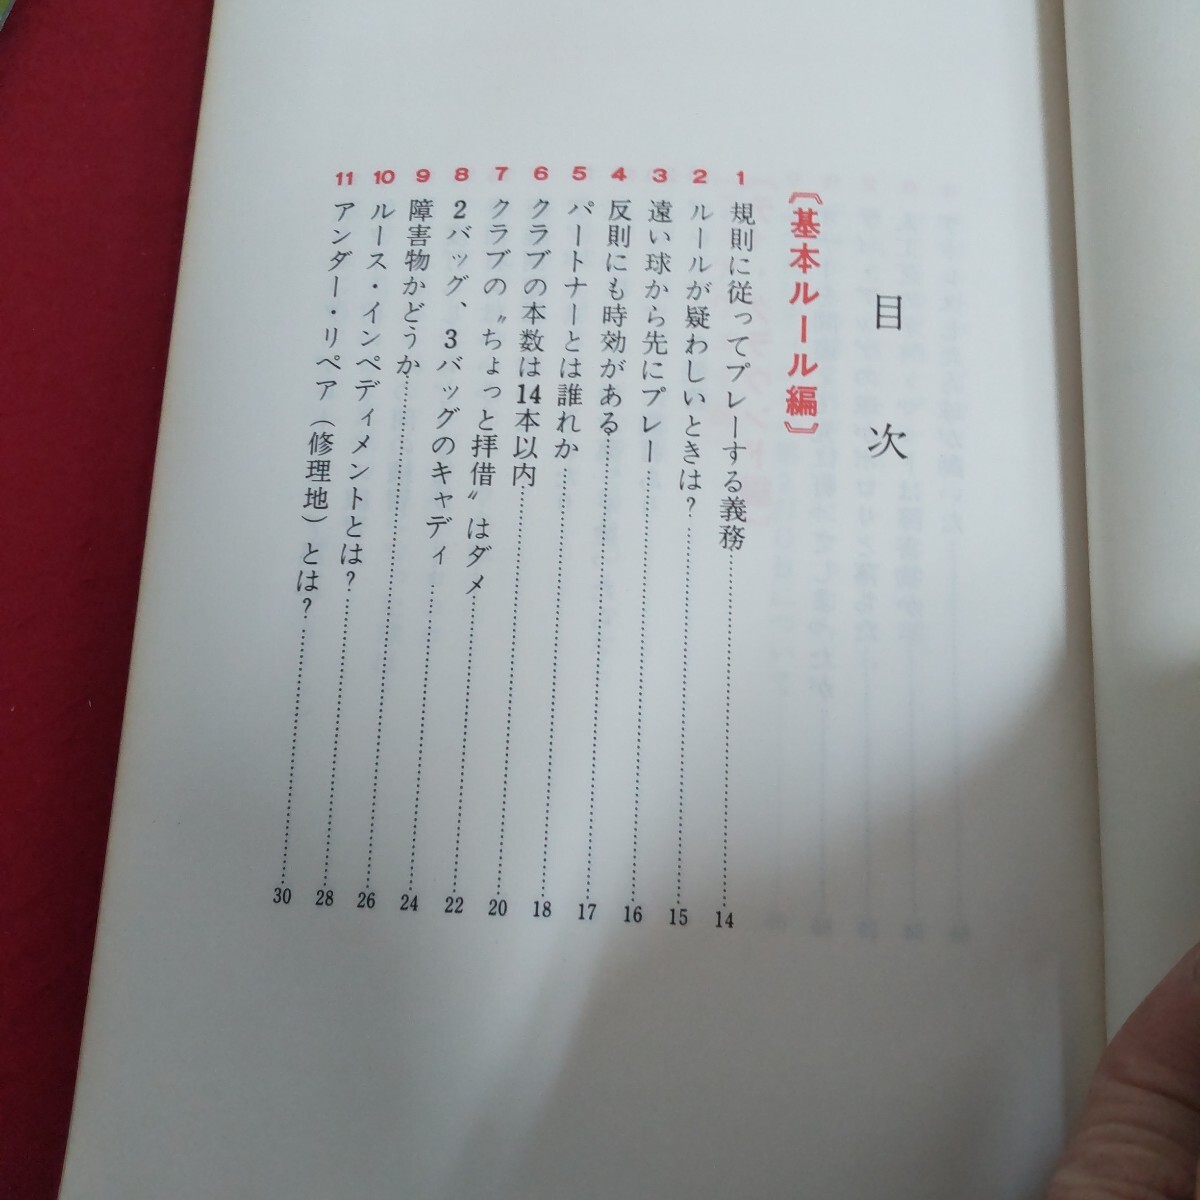 目次
〔基本ルール編〕
1 規則に従ってプレーする義務 14
2 ルールが疑わしいときは? 15
3 遠い球から先にプレー 16
4 反則にも時効がある 17
5 パートナーとは誰れか 18
6 クラブの本数は14本以内 20
7 クラブの〝ちょっと拝借〟はダメ 22
8 2バッグ、3バッグのキャディ 24
9 障害物かどうか 26
10 ルース・インペディメントとは? 28
11 アンダー・リペア(修理地)とは? 30